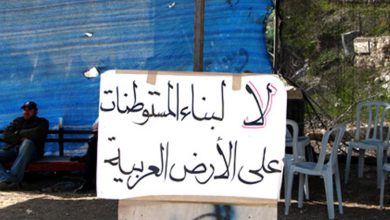 لا لبناء المستوطنات
على الأرض العربية